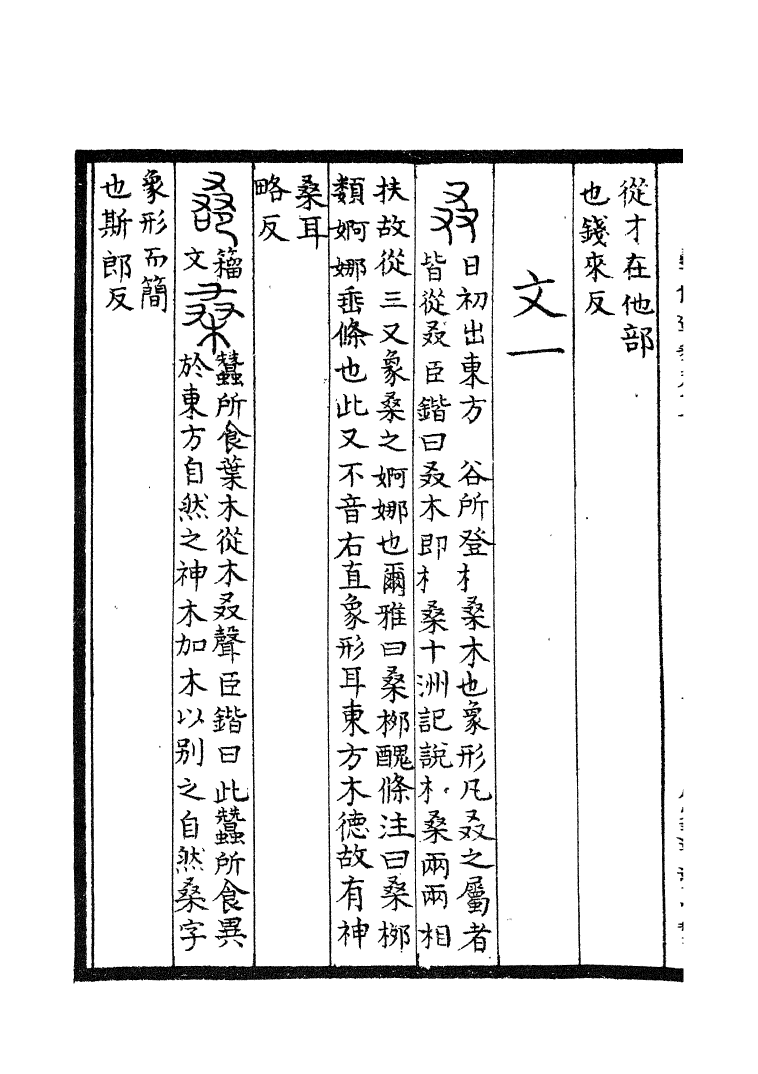 從才在他部
也錢來反
文一
叒
日初出東方 谷所登 桑木也象形凡叒之屬者
皆從叒臣鍇曰叒木即 桑十洲記說 桑兩兩相
扶故從三又象桑之婀娜也爾雅曰桑桞醜條注曰桑桞
類婀娜垂條也此又不音右直象形耳東方木德故有神
桑耳
略反
籀
文
桑
蠶所食葉木從木叒聲臣鍇曰此蠶所食異
於東方自然之神木加木以别之自然桑字
象形而簡
也斯郎反